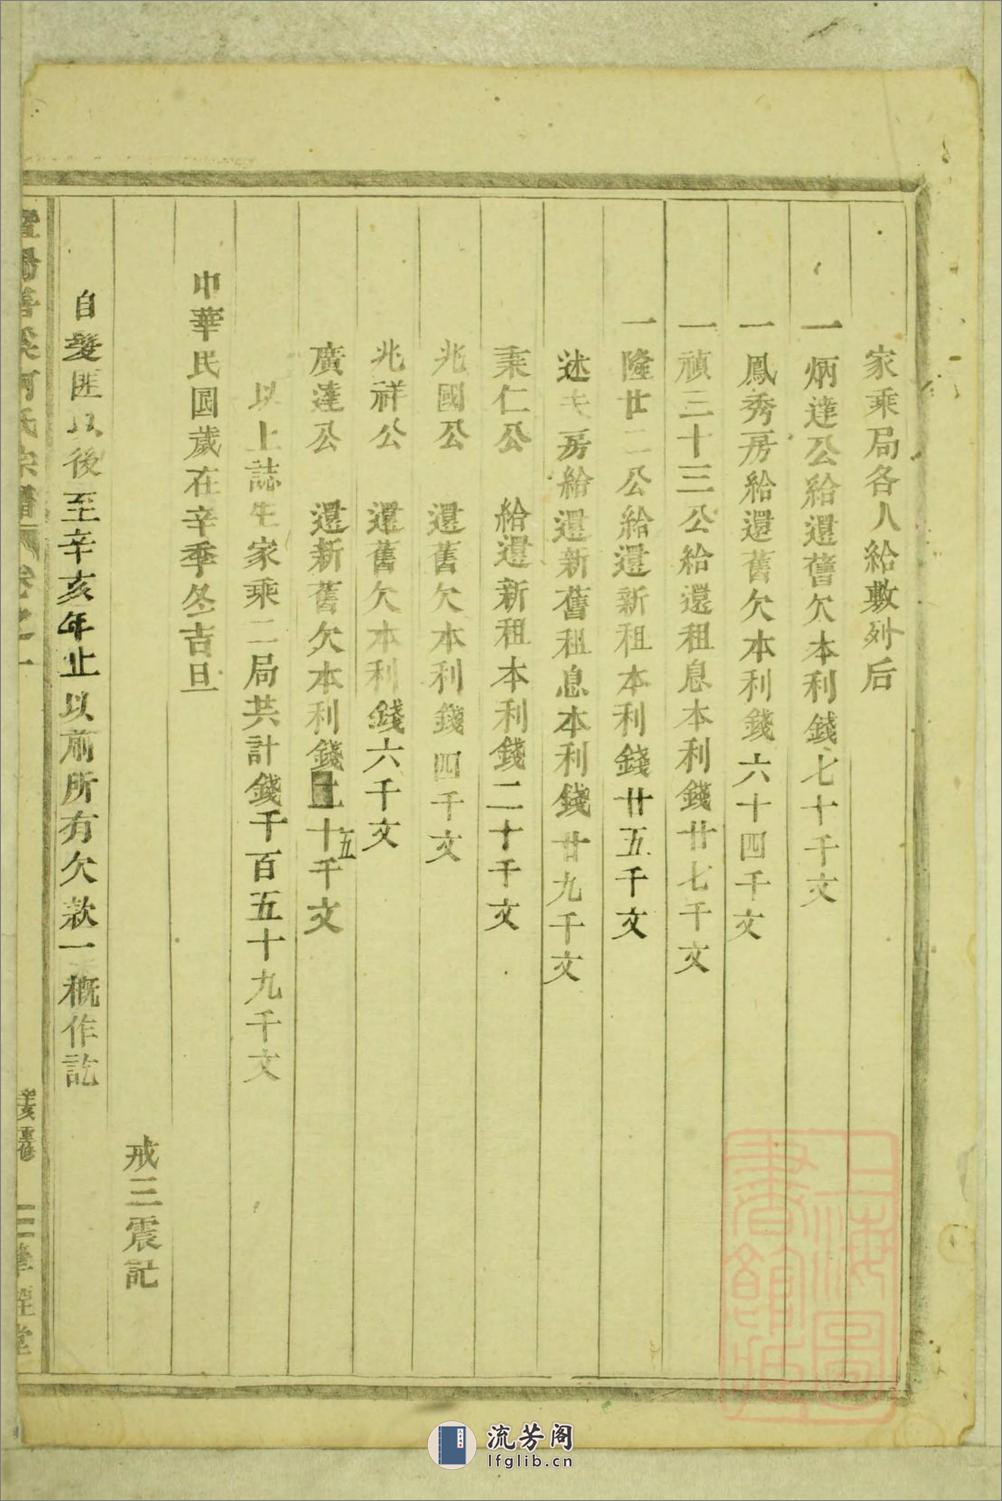 家乘局各人給數列后
一炳達公給還舊欠本利錢七十千文
一鳳秀房給還舊欠本利錢六十四千文
一禎三十三公給還租息本利錢廿七千文
一隆廿二公給還新租本利錢廿五千文
述夫房給還新舊租息本利錢廿九千文
秉仁公 給還新租本利錢二十千文
兆國公 還舊欠本利錢四千文
兆祥公 還舊欠本利錢六千文
廣達公 還新舊欠本利錢十五千文
以上誌生家乘二局共計錢千百五十九千文
中華民國歲在辛季冬吉旦
戒三震記
自髮匪以後至辛亥年止以前所有欠款一概作訖
氏宗譜 卷之一 辛亥重修
上海圖書館藏
流芳阁
lfglib.cn